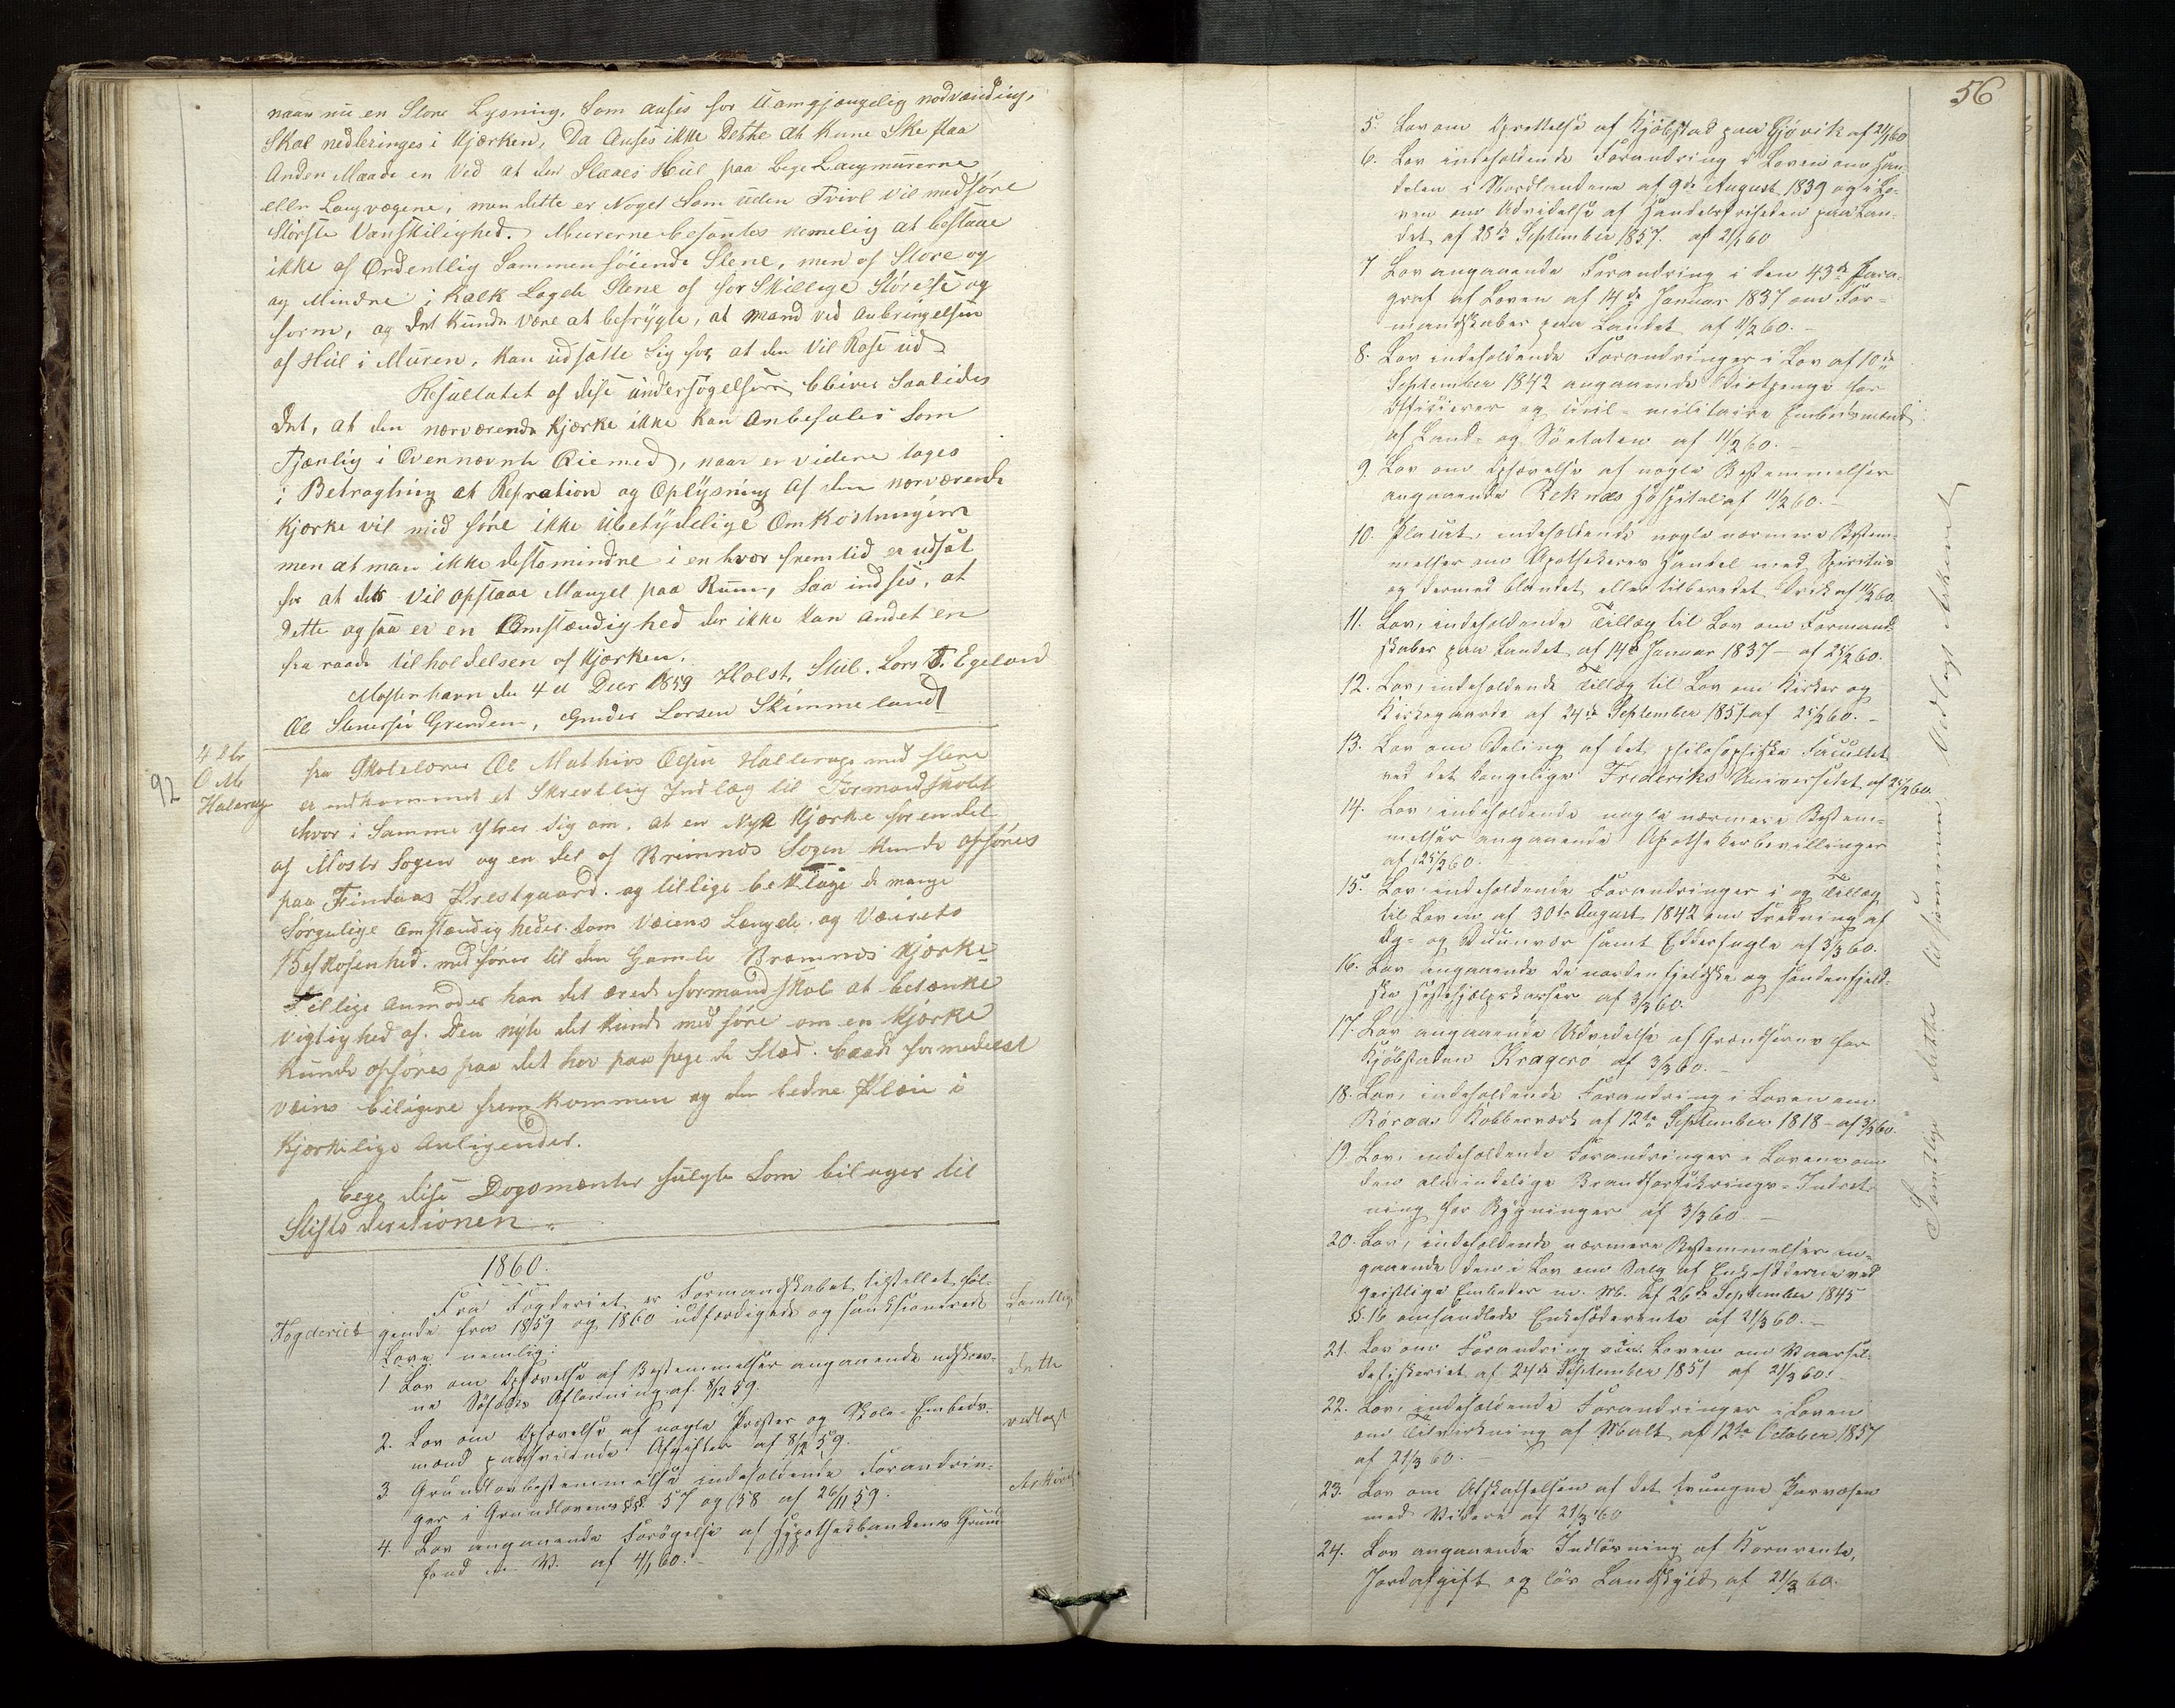 naar nu en Store Lysning, Som anses for Uomgjængelig nødvændig,
Skal nedbringes i Kjærken, Da Anses ikke Dette at Kune Ske paa
Anden Maade en Ved at der Slaaes Hul paa bege Langmurerne
eller Langvægene, men dette er Noget Som uden Tvivl Vil medføre
Største Vanskelighed. Murerne befantes nemelig at bestaae
ikke af Ordentlig Sammenføiende Stene, men af Store og
og Mindre i Kalk Lagde Stene af forskillige Størelse og
form, og Det Kunde Være at befrygte, at Mand ved Anbringelsen
af Hul i Muren, Kan udsætte Sig for at den Vil Rase ud
Resultatet af disse undersøgelser bliver Saaledes
Det, at den nærværende Kjærke ikke Kan Anbefales Som
Tjænlig i Ovennævnte Øiemed, naar en videre tages
i Betragtning at Repration og Oplysning af den nærværende
Kjærke vil med føre ikke Ubetydelige Omkostninger
men at man ikke destomindre i en hvær fremtid er udsat
for at det Vil opstaae Mangel paa Rum, Saa indses, at
Dette ogsaa er en Omstændighed der ikke Kan andet en
fra raade tilholdelsen af Kjærken.
Mosterhavn den 4de Decr 1859 Holst, Stub. Lars T. Egeland
Ol Stenersen Grendem, Gunder Larsen Skimmeland
92
4
O M
Halerage
fra Skolelærer Ol Mathias Olsen Hallerage med flere
er indkommet et Skrevtlig Indlæg til Formandskabet
hvor i Samme Ytrer Sig om, at en Nye Kjærke for en del
af Moster Sogen og en del af Bremnes Sogen Kunde opføres
paa Findaas Prestgaard. og tillige beklage de mange
Sørgelige Omstændigheder som Væiens Længde og Væirets
Beskafenhed medfører til den Gamle Bræmnæs Kjærke
Tillige Anmoder han det ærede formandskab at betænke
Vigtighed af. Den nyte det Kunde medføre om en Kjærke
Kunde opføres paa det her paa pege de Stæd. baade formedelst
Væins beligere frem Kommen og den bedre Plæie i
Kjærkelige Anligender.
bege disse Dogomænter fulgte Som bilager til
Stifts Dirctionen.
1860.
Fogderiet
Fra Fogderiet er Formandskabet tilstillet føl-
gende fra 1859 og 1860 udfærdigede og sanktionerede
Love nemlig:
Samtlige
dette
vedlagt
Arkivet
1 Lov om Ophævelse af Bestemmelser angaaende udskrev-
ne Søfolks Aflønning af 8/12 59.
2. Lov om Ophævelse af nogle Prester og Skole-Embeds-
mænd paahvilende Afgifter af 8/12 59.
3 Grundlovbestemmelse indeholdende Forandrin-
ger i Grundlovens §§ 57 og 58 af 26/11 59.
4. Lov angaaende Forøgelse af Hypothekbankens Grund
fond m. V. af 4/1 60.
56
5. Lov om Oprettelse af Kjøbstad paa Gjøvik af 21/1 60
6. Lov indeholdende Forandring i Loven om Han-
delen i Nordlandene af 9de August 1839 og i Lo-
ven om Udvidelse af Handelsfriheden paa Lan-
det af 28de September 1857. af 21/1 60
7 Lov angaaende Forandring i den 43de Para-
graf af Loven af 14de Januar 1837 om For-
mandskaber paa Landet af 11/2 60.
8. Lov indeholdende Forandringer i Lov af 10de
September 1842 angaaende Diætpenge for
Officierer og civil-militaire Embedsmænd
af Land- og Søetaten af 11/2 60.
9. Lov om Ophævelse af nogle Bestemmelser
angaaende Reknæs Hospital af 11/2 60.
10. Placat, indeholdende nogle nærmere Bestem-
melser om Apothekeres Handel med Spiritus
og dermed blandet eller tilberedet Drik af 11/2 60.
11. Lov, indeholdende Tillæg til Lov om Formand-
skaber paa Landet af 14de Januar 1837 - af 25/2 60.
12. Lov, indeholdende Tillæg til Lov om Kirker og
Kirkegaarde af 24de September 1851 af 25/2 60.
13. Lov om Deling af det philosophiske Facultet
ved det kongelige Frederiks Universitet af 25/2 60.
14. Lov, indeholdende nogle nærmere Bestem-
melser angaaende Apothekerbevillinger
af 25/2 60.
15. Lov indeholdende Forandringer i og Tillæg
til Loven af 30te August 1842 om Fredning af
Æg- og Duunvær samt Edderfugle af 3/3 60.
16. Lov angaaende de nordenfjeldske og søndenfjeld-
ske Hestehjælpskasser af 3/3 60.
17. Lov angaaende Udvidelse af Grændserne for
Kjøbstaden Kragerø af 3/3 60.
18. Lov, indeholdende Forandring i Loven om
Røraas Kobberværk af 12te September 1818 - af 3/3 60.
19. Lov, indeholdende Forandringer i Lovene om
den almindelige Brandforsikrings-Indret-
ning for Bygninger af 3/3 60.
20. Lov, indeholdende nærmere Bestemmelser an-
gaaende den i Lov om Salg af Enkesæderne ved
geistlige Embeder m. M. af 26de September 1845
§. 16 omhandlede Enkesæderente af 21/3 60.
21. Lov om Forandring i Loven om Vaarsil-
defiskeriet af 24de September 1851 af 21/3 60.
22. Lov, indeholdende Forandringer i Loven
om Tilvirkning af Malt af 12te October 1857
af 21/3 60.
23. Lov om Afskaffelsen af det tvungne Pasvæsen
med Videre af 21/3 60
24. Lov angaaende Indløsning af Kornrente,
Jordafgift og løs Landskyld af 21/3 60.
Samtlige dette til sammen Vedlagt Arkivet